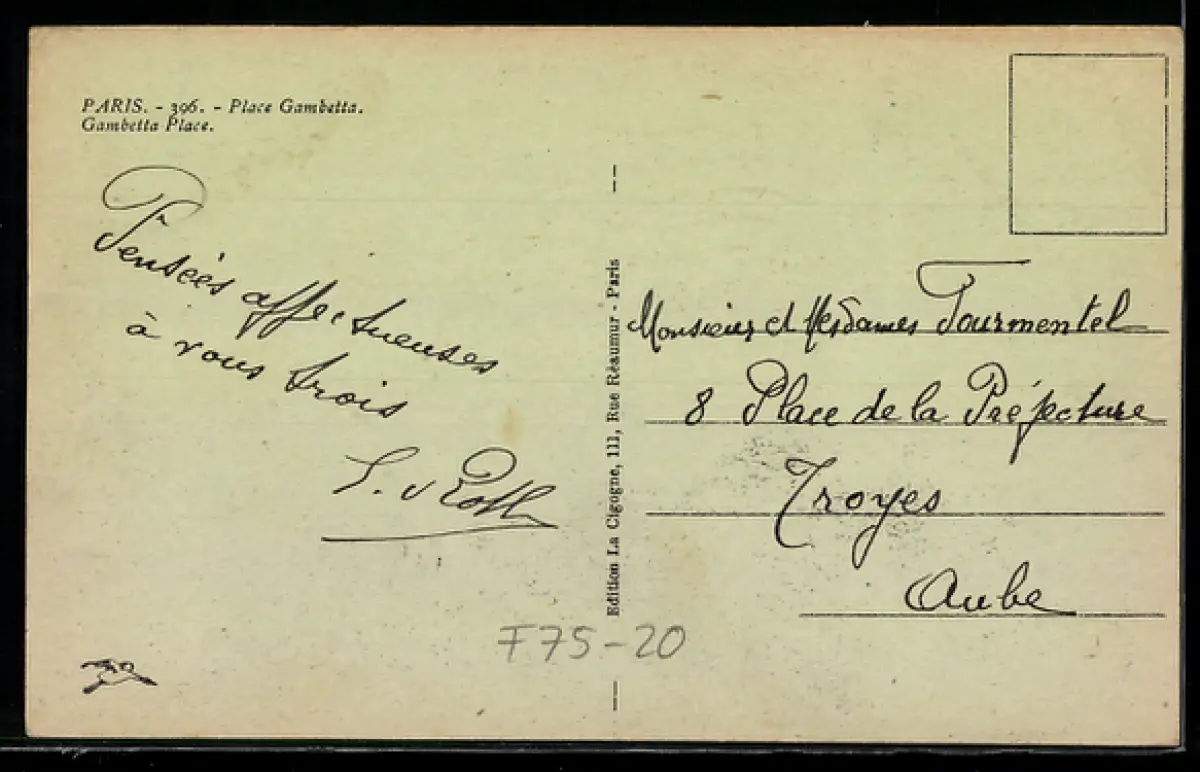 PARIS. - 396. - Place Gambetta.
Gambetta Place.
Pensées affectueuses
à vous trois
Edition La Cigogne, 111, Rue Réaumur - Paris
Monsieur et Mesdames Tourmentel
8 Place de la Préfecture
Troyes
Aube
F75-20